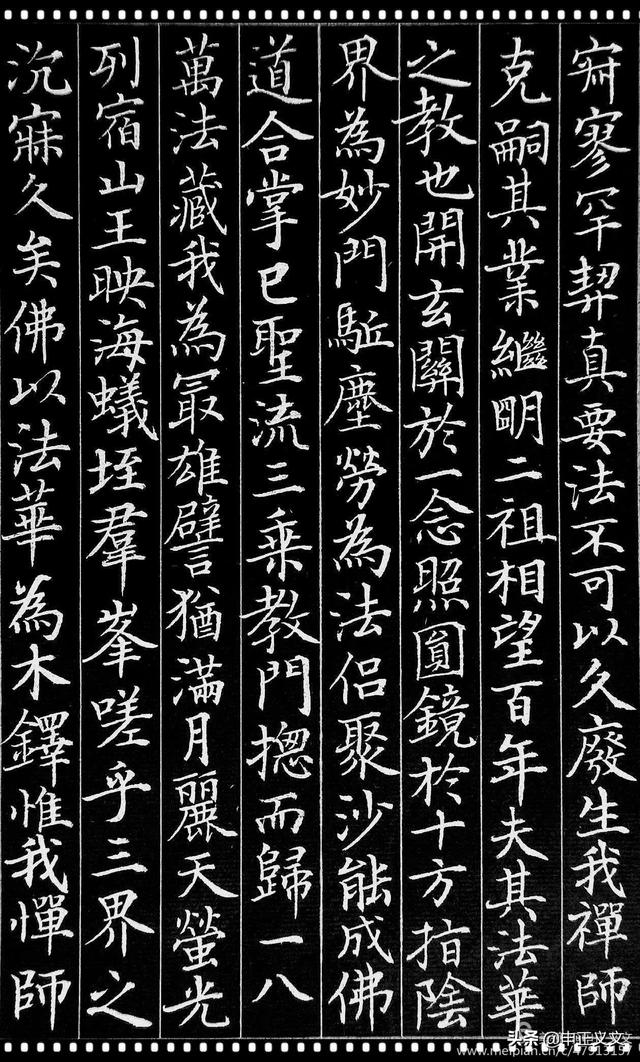 寂寥罕契真要法不可以久廢生我禪師
克嗣其業繼朙二祖相望百年夫其法華
之教也開玄關於一念照圓鏡於十方指陰
界為妙門駈塵勞為法侶聚沙能成佛
道合掌已聖流三乗教門揔而歸一八
萬法藏我為冣雄譬猶滿月麗天螢光
列宿山王映海蟻垤羣峯嗟乎三界之
沉寐久矣佛以法華為木鐸惟我憚師
头条 @申正义文
www.meipian.cn